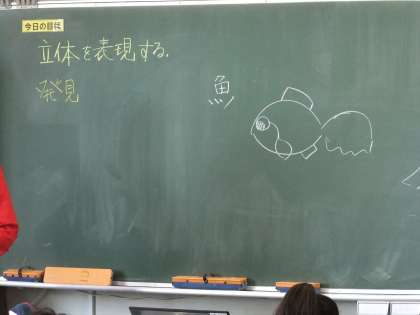 今日の目標
立体を表現する.
発見
魚